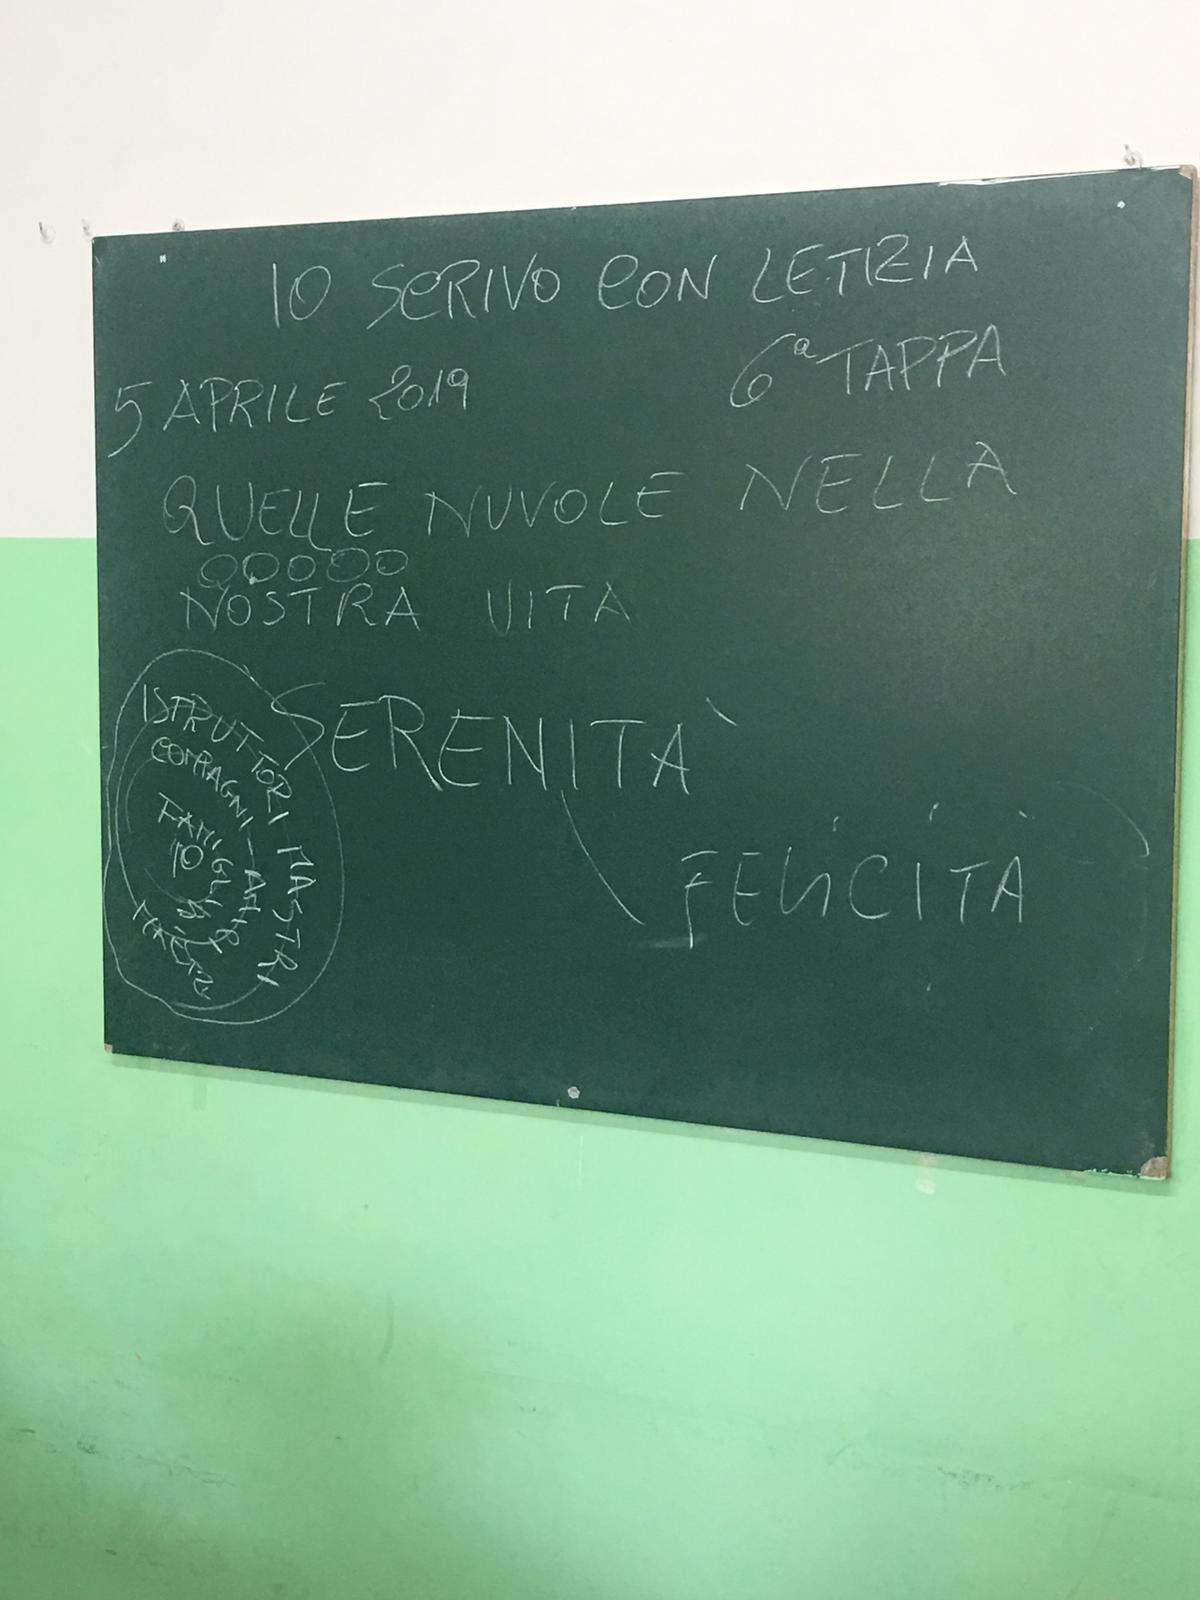 IO SCRIVO CON LETIZIA
6ª TAPPA
5 APRILE 2019
QUELLE NUVOLE NELLA
NOSTRA VITA
SERENITÀ
FELICITÀ
ISTRUTTORI MAESTRI
COMPAGNI-AMICI
FAMIGLIA
IO